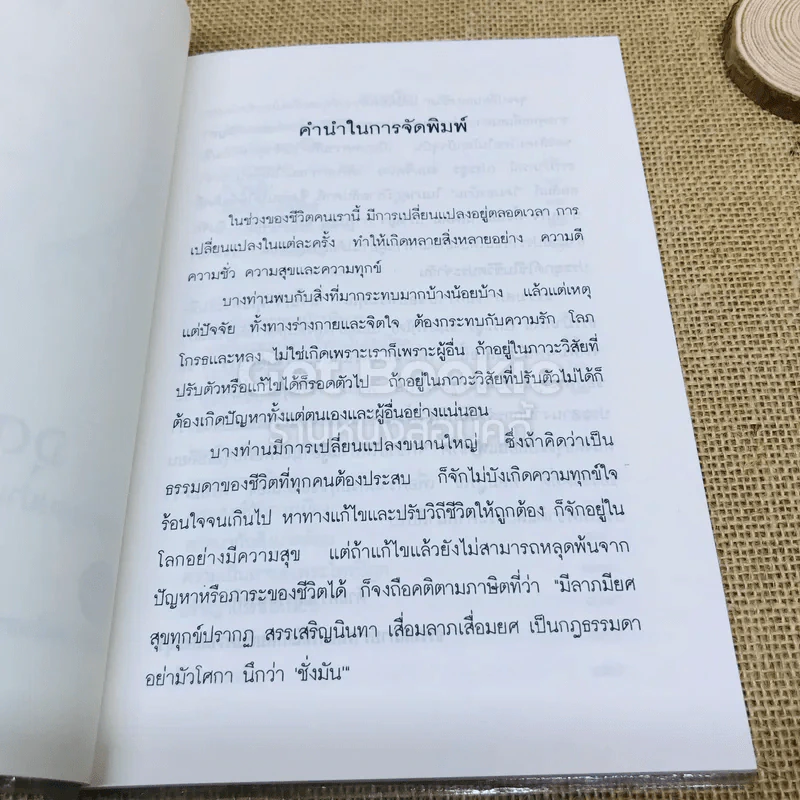 คำนำในการจัดพิมพ์
ในช่วงของชีวิตคนเรานี้ มีการเปลี่ยนแปลงอยู่ตลอดเวลา การ
เปลี่ยนแปลงในแต่ละครั้ง ทำให้เกิดหลายสิ่งหลายอย่าง ความดี
ความชั่ว ความสุขและความทุกข์
บางท่านพบกับสิ่งที่มากระทบมากบ้างน้อยบ้าง แล้วแต่เหตุ
แต่ปัจจัย ทั้งทางร่างกายและจิตใจ ต้องกระทบกับความรัก โลภ
โกรธและหลง ไม่ใช่เกิดเพราะเราก็เพราะผู้อื่น ถ้าอยู่ในภาวะวิสัยที่
ปรับตัวหรือแก้ไขได้ก็รอดตัวไป ถ้าอยู่ในภาวะวิสัยที่ปรับตัวไม่ได้ก็
ต้องเกิดปัญหาทั้งแต่ตนเองและผู้อื่นอย่างแน่นอน
บางท่านมีการเปลี่ยนแปลงขนานใหญ่ ซึ่งถ้าคิดว่าเป็น
ธรรมดาของชีวิตที่ทุกคนต้องประสบ ก็จักไม่บังเกิดความทุกข์ใจ
ร้อนใจจนเกินไป หาทางแก้ไขและปรับวิถีชีวิตให้ถูกต้อง ก็จักอยู่ใน
โลกอย่างมีความสุข แต่ถ้าแก้ไขแล้วยังไม่สามารถหลุดพ้นจาก
ปัญหาหรือภาระของชีวิตได้ ก็จงถือคติตามภาษิตที่ว่า "มีลาภมียศ
สุขทุกข์ปรากฏ สรรเสริญนินทา เสื่อมลาภเสื่อมยศ เป็นกฎธรรมดา
อย่ามัวโศกา นึกว่า 'ชั่งมัน'"
Got Bookie
ร้านหนังสือมุคกี้